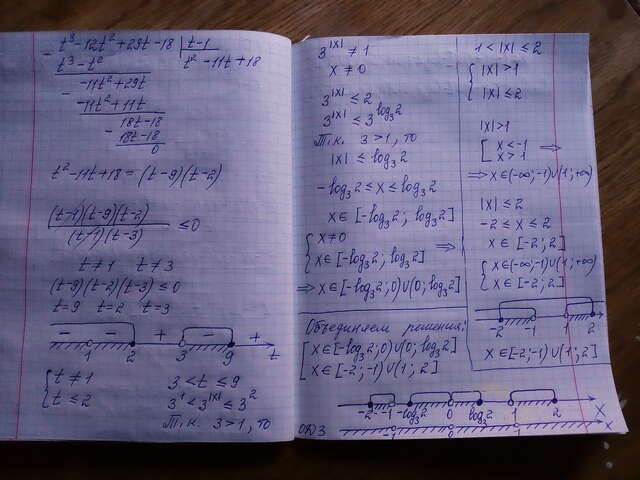 t³-12t²+29t-18 | t-1
t³-t² t²-11t+18
-11t²+29t
-11t²+11t
18t-18
18t-18
0
t²-11t+18=(t-9)(t-2)
(t-1)(t-9)(t-2)
(t-1)(t-3) ≤0
t≠1 t≠3
(t-9)(t-2)(t-3)≤0
t=9 t=2 t=3
- - + - +
1 2 3 9 t
{ t≠1
t≤2
3<t≤9
3¹<3^|x|≤3²
Т.к. 3>1, то
3^|x|≠1
x≠0
3^|x|≤2
3^|x|≤3^log₃2
Т.к. 3>1, то
|x|≤log₃2
-log₃2≤x≤log₃2
x∈[-log₃2; log₃2]
{ x≠0
x∈[-log₃2; log₃2] ⇒
⇒ x∈[-log₃2;0)∪(0;log₃2]
1<|x|≤2
{ |x|>1
|x|≤2
|x|>1
[ x<-1
x>1 ⇒
⇒x∈(-∞;-1)∪(1;+∞)
|x|≤2
-2≤x≤2
x∈[-2;2]
{ x∈(-∞;-1)∪(1;+∞)
x∈[-2;2]
-2 -1 1 2
x∈[-2;-1)∪(1;2]
Объединяем решения:
[ x∈[-log₃2;0)∪(0;log₃2]
x∈[-2;-1)∪(1;2]
-2 -1 -log₃2 0 log₃2 1 2 x
ОДЗ -1 0 1 x